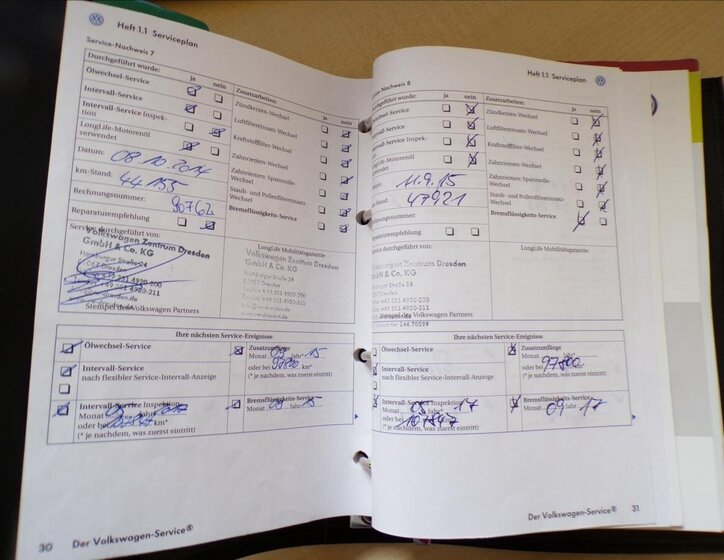 Heft 1.1 Serviceplan
Service-Nachweis 7
Durchgeführt wurde:
ja
nein
Zusatzarbeiten:
ja
nein
Ölwechsel-Service
Zündkerzen-Wechsel
Intervall-Service
Luftfiltereinsatz-Wechsel
Intervall-Service Inspek-
tion
Kraftstofffilter-Wechsel
LongLife-Motorenöl
verwendet
Zahnriemen-Wechsel
Datum: 08.10.2014
Zahnriemen-Spannrolle-
Wechsel
km-Stand: 44 155
Staub- und Pollenfiltereinsatz-
Wechsel
Rechnungsnummer: 90762
Bremsflüssigkeits-Service
Reparaturempfehlung
Service durchgeführt von:
LongLife Mobilitätsgarantie:
Volkswagen Zentrum Dresden
GmbH & Co. KG
Hamburger Straße 24
Dresden
+49 351 4920-200
+49 351 4920-211
Volkswagen Zentrum Dresden
GmbH & Co. KG
Hamburger Straße 24
Dresden
+49 351 4920-200
+49 351 4920-211
Stempel des Volkswagen Partners
Ihre nächsten Service-Ereignisse
Ölwechsel-Service
Zusatzumfänge
Monat 09 Jahr* 15
Intervall-Service
nach flexibler Service-Intervall-Anzeige
oder bei km*
(* je nachdem, was zuerst eintritt)
Intervall-Service Inspektion
Monat Jahr*
oder bei km*
(* je nachdem, was zuerst eintritt)
Bremsflüssigkeits-Service
Monat 09 Jahr 15
30
Der Volkswagen-Service®
Heft 1.1 Serviceplan
-Nachweis 8
geführt wurde:
ja
nein
Zusatzarbeiten:
ja
nein
Zündkerzen-Wechsel
-Service
Luftfiltereinsatz-Wechsel
-Service Inspek-
Kraftstofffilter-Wechsel
LongLife-Motorenöl
verwendet
Zahnriemen-Wechsel
11.9.15
Zahnriemen-Spannrolle-
Wechsel
-Stand: 47921
Staub- und Pollenfiltereinsatz-
Wechsel
nummer:
Bremsflüssigkeits-Service
Reparaturempfehlung
durchgeführt von:
LongLife Mobilitätsgarantie:
Volkswagen Zentrum Dresden
GmbH & Co. KG
Hamburger Straße 24
01067 Dresden
+49 351 4920-200
+49 351 4920-211
Stempel des Volkswagen Partners
146 70599
Ihre nächsten Service-Ereignisse
Ölwechsel-Service
Zusatzumfänge
Monat Jahr*
Intervall-Service
nach flexibler Service-Intervall-Anzeige
oder bei 97800 km*
(* je nachdem, was zuerst eintritt)
Intervall-Service Inspektion
Monat 09 Jahr* 17
oder bei km*
(* je nachdem, was zuerst eintritt)
Bremsflüssigkeits-Service
Monat 09 Jahr 17
Der Volkswagen-Service®
31